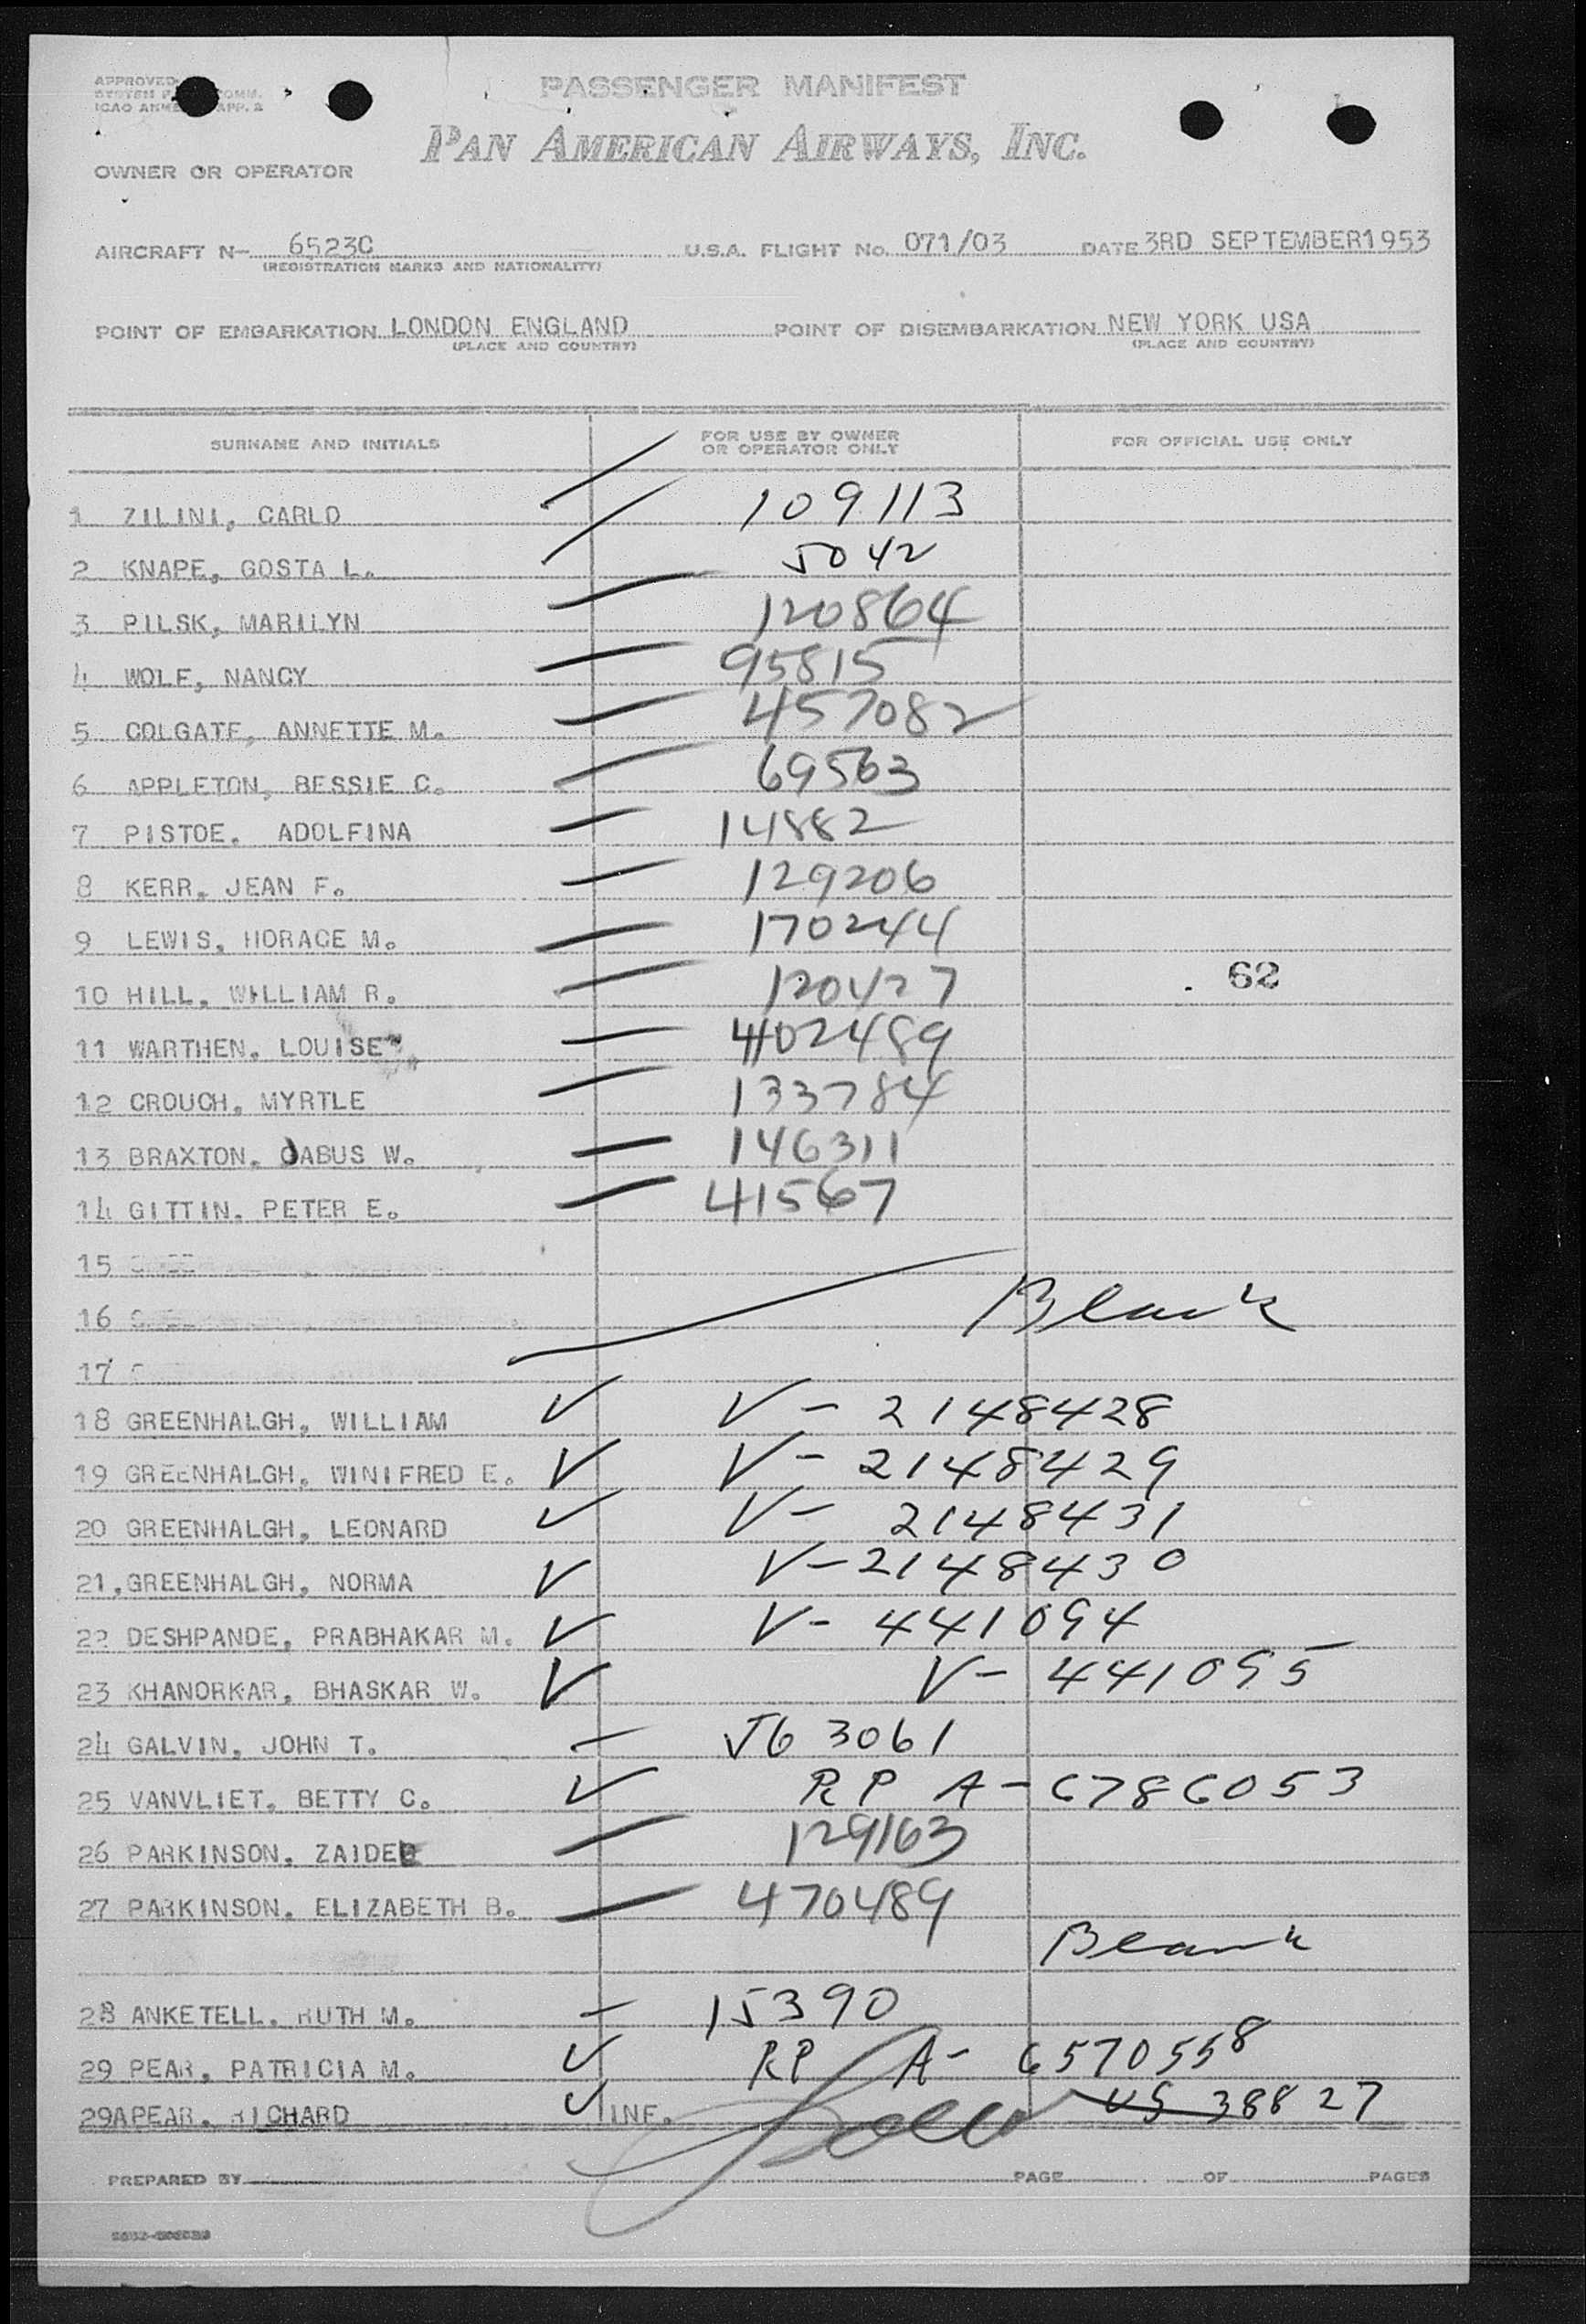 PASSENGER MANIFEST
PAN AMERICAN AIRWAYS, INC.
OWNER OR OPERATOR
AIRCRAFT N- 6523C U.S.A. FLIGHT No. 071/03 DATE 3RD SEPTEMBER1953
(REGISTRATION MARKS AND NATIONALITY)
POINT OF EMBARKATION LONDON ENGLAND POINT OF DISEMBARKATION NEW YORK USA
(PLACE AND COUNTRY) (PLACE AND COUNTRY)
SURNAME AND INITIALS FOR USE BY OWNER OR OPERATOR ONLY FOR OFFICIAL USE ONLY
1 ZILINI, CARLO 109113
2 KNAPE, GOSTA L. 5042
3 PILSK, MARILYN 120864
4 WOLF, NANCY 95815
5 COLGATE, ANNETTE M. 457082
6 APPLETON, BESSIE C. 69563
7 PISTOE. ADOLFINA 14882
8 KERR, JEAN F. 129206
9 LEWIS, HORACE M. 170244
10 HILL, WILLIAM R. 120427 62
11 WARTHEN, LOUISE 402489
12 CROUCH, MYRTLE 133784
13 BRAXTON, CABUS W. 146311
14 GITTIN, PETER E. 41567
15
16 Blank
17
18 GREENHALGH, WILLIAM V- 2148428
19 GREENHALGH, WINIFRED E. V- 2148429
20 GREENHALGH, LEONARD V- 2148431
21 GREENHALGH, NORMA V-2148430
22 DESHPANDE, PRABHAKAR M. V- 441094
23 KHANORKAR, BHASKAR W. V- 441095
24 GALVIN, JOHN T. 563061
25 VANVLIET, BETTY C. RP A-6786053
26 PARKINSON, ZAIDEE 129163
27 PARKINSON, ELIZABETH B. 470489
Blank
28 ANKETELL, RUTH M. 15390
29 PEAR, PATRICIA M. RP A- 6570558
29APEAR, RICHARD INF. US 38827
PREPARED BY PAGE OF PAGES